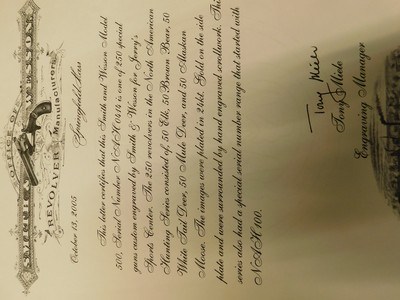 OFFICE OF
SMITH & WESSON
REVOLVER Manufacturers
Springfield, Mass
October 13, 2005
This letter certifies that this Smith and Wesson Model
500, Serial Number NAH0424 is one of 250 special
guns custom engraved by Smith & Wesson for Jerry's
Sports Center. The 250 revolvers in the North American
Hunting Series consisted of, 50 Elk, 50 Brown Bear, 50
White Tail Deer, 50 Mule Deer, and 50 Alaskan
Moose. The images were plated in 24kt. Gold on the side
plate and were surrounded by hand engraved scrollwork. This
series also had a special serial number range that started with
NAH100.
Tony Miele
Tony Miele
Engraving Manager